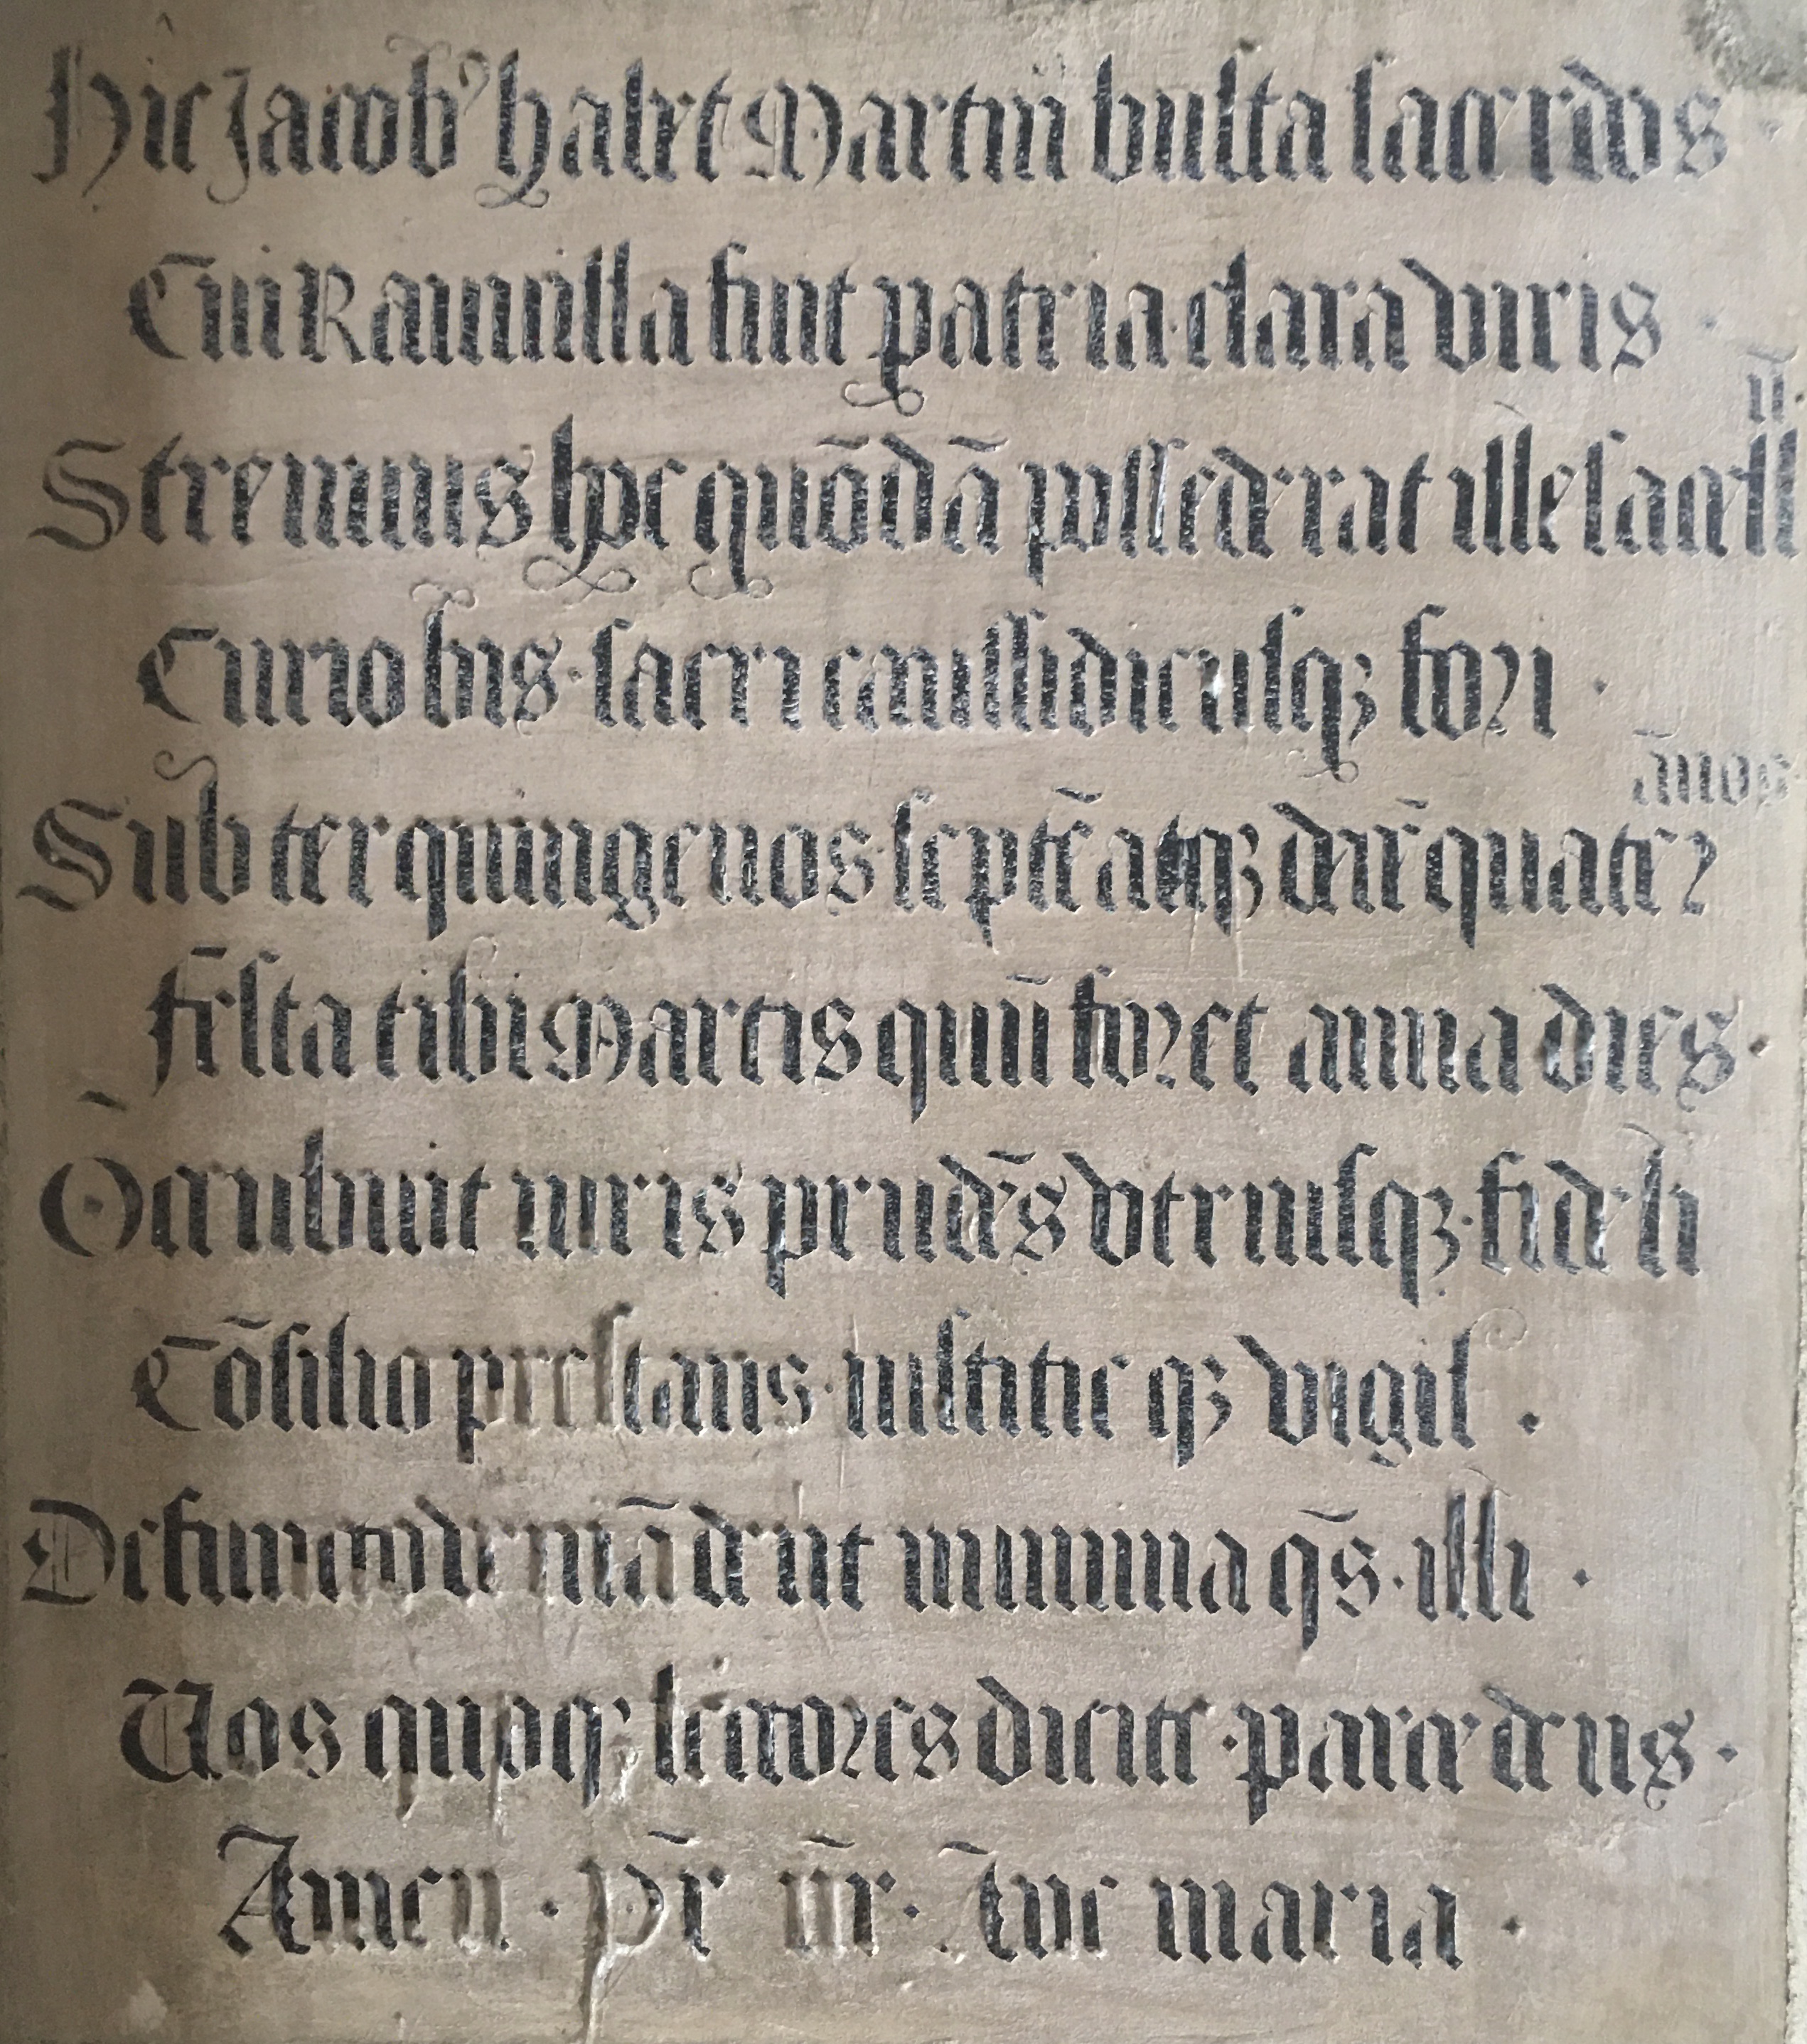 Hic Jacob⁹ habet Martin busta sacerdos
Cui Rauuilla fuit patria clara viris
Strenuus hoc quōdā possederat ille sacell
ū.
Curio bis· sacri caussidicusqꝫ fori ·
ānos
Sub ter quingenos septē atqꝫ decē quater
Festa tibi Martis quū foret anna dies·
Occubuit iuris prudēs vtriusqꝫ· fideli
Cōsilio prestans· iustitie qꝫ vigil ·
Defuncto de mādent mununa q̄s· illi ·
Uos quoqꝫ lectores dicite· parce deus·
Amen · Pr̄ nr̄· Aue maria ·